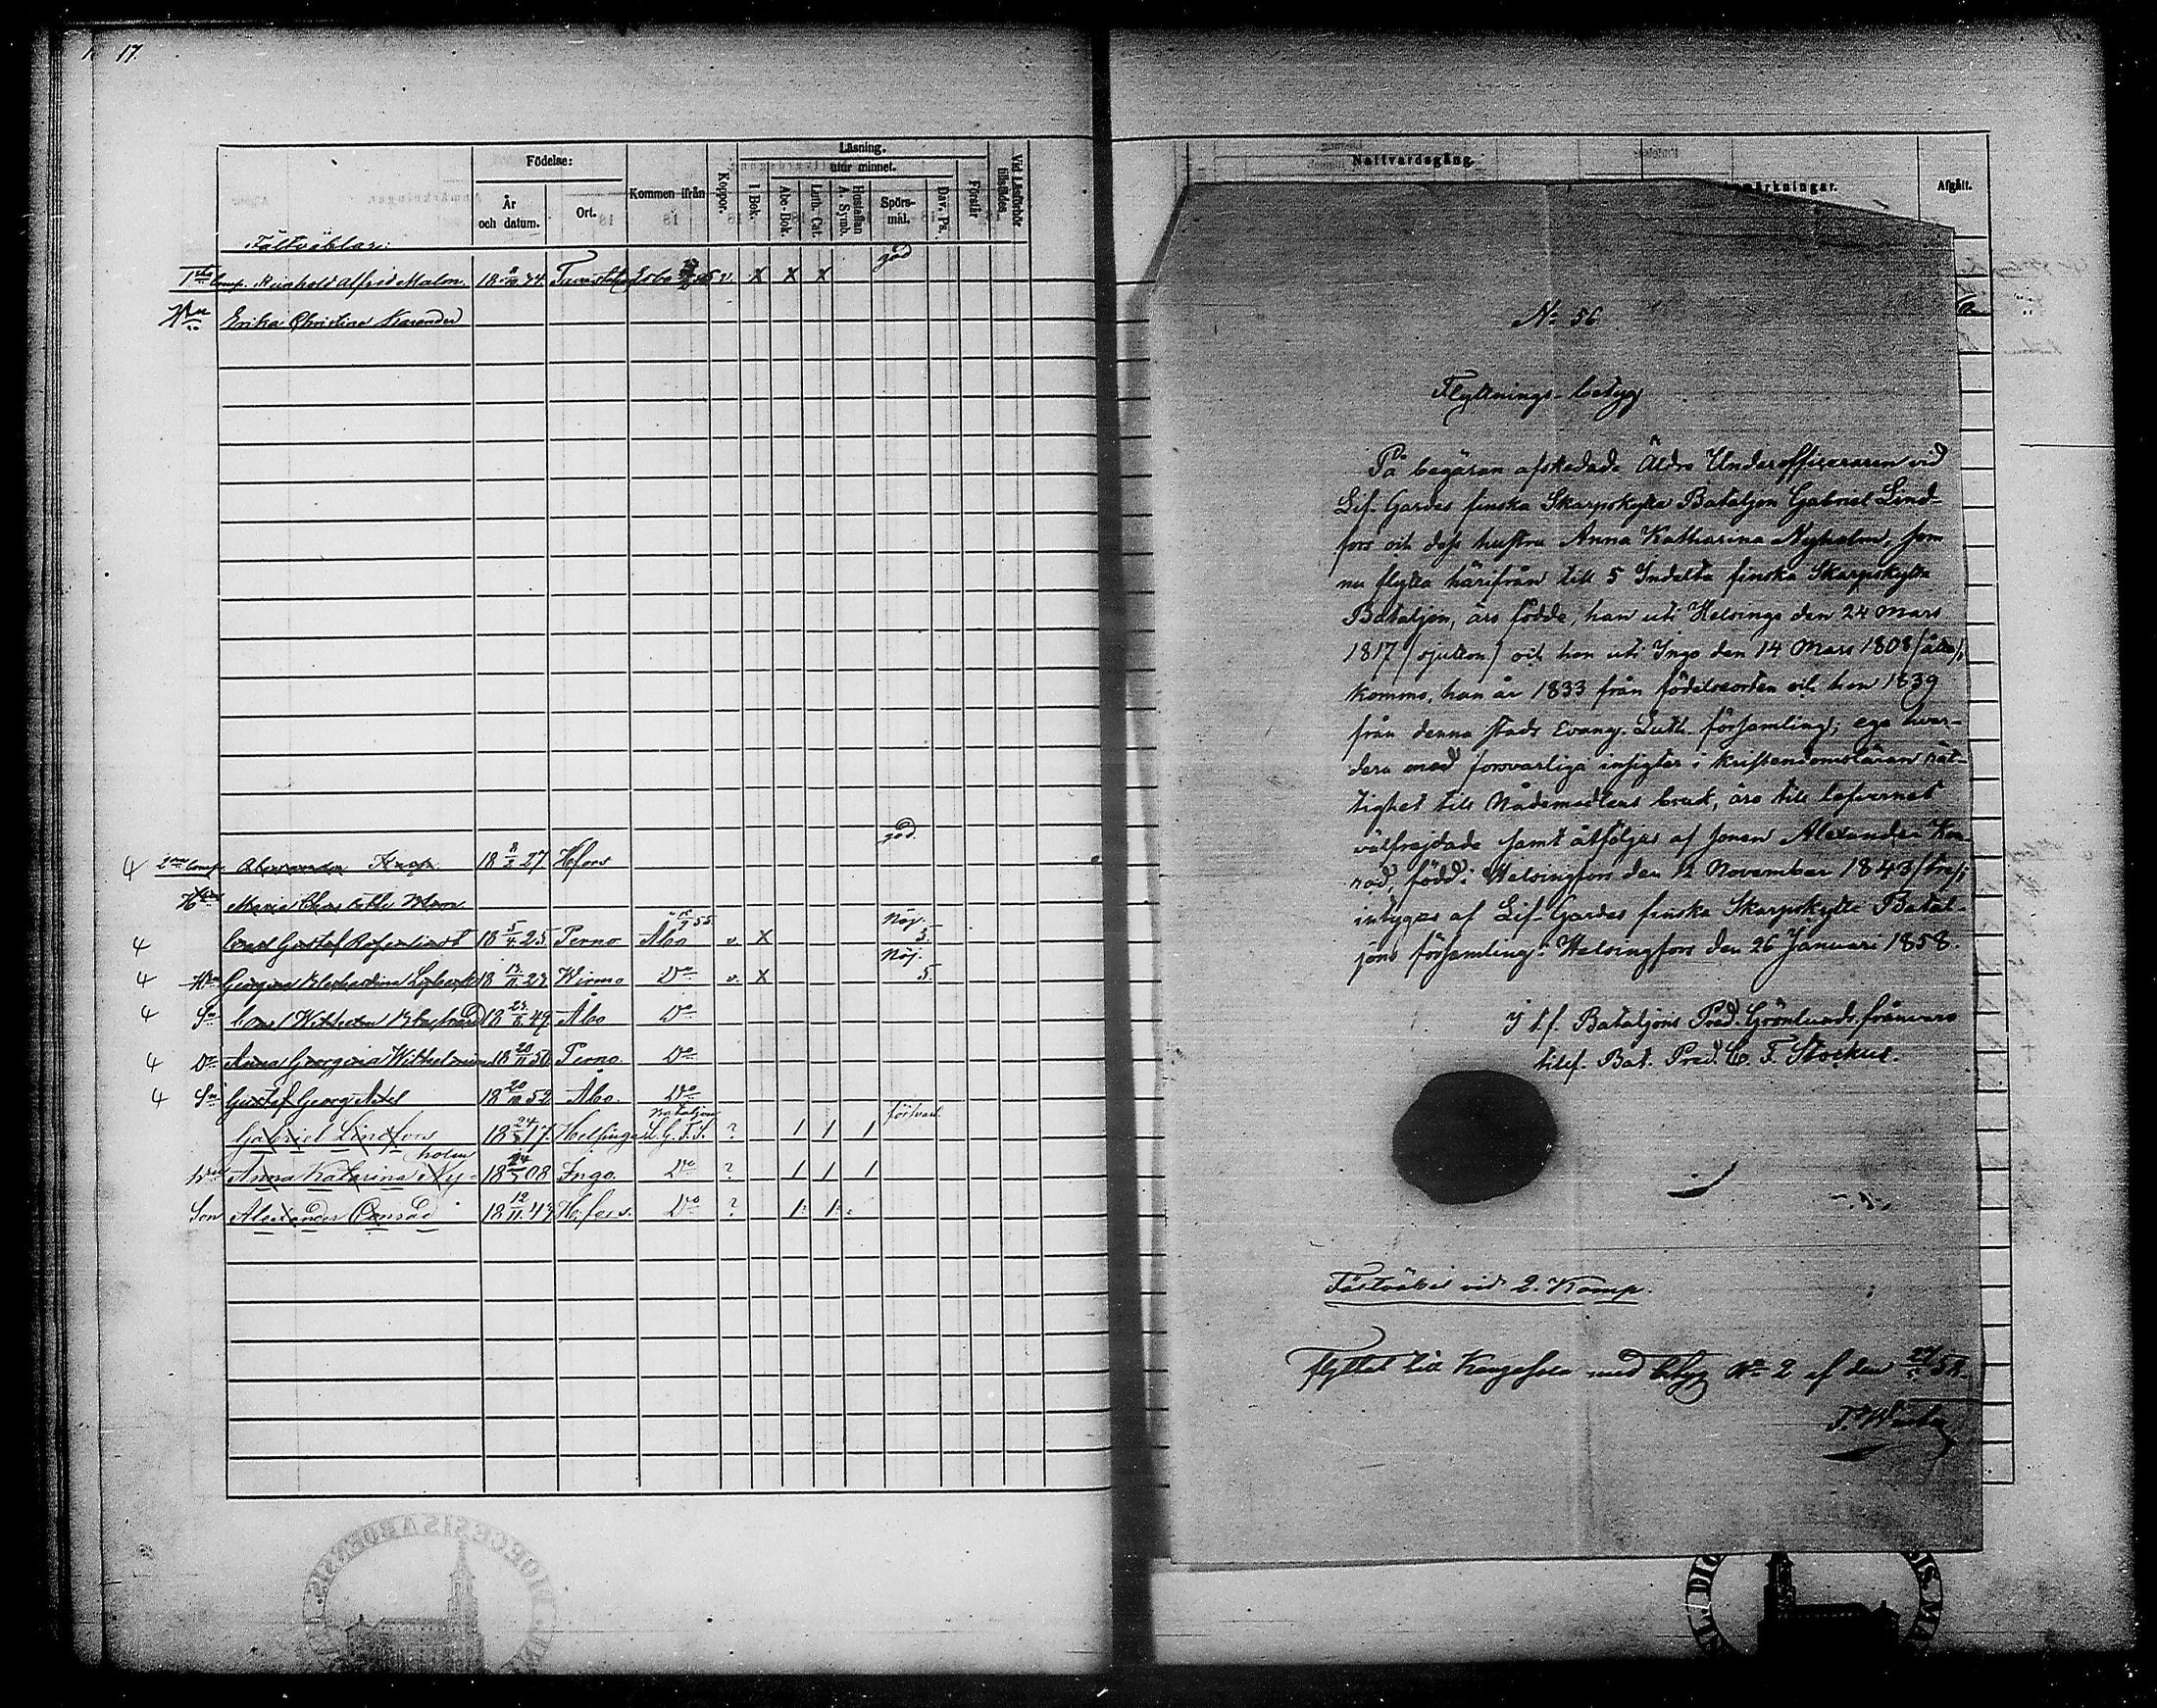 17.
Födelse:
År och datum.
Ort.
Kommen ifrån
Koppor.
Läsning.
I Bok.
utur minnet.
Abc-Bok.
Luth. Cat.
Hustaflan A. Symb.
Spörs-mål.
Dav. Ps.
Förstår
Vid Läseförhör tillstädes.
Nattvardsgång.
Afgått.
Fältväblar:
god
1sta Comp. Reinhold Alfred Malm. 18 34. Esbo v. X X X
Hru Erika Christina
god.
4 2dra Comp. Alexander 18 8/2 27. Hfors
Hru Maria Charlotta
4 Gustaf 18 5/4 25. Perno Åbo 55 v. X Nöj. 5.
4 Hru Georgina 18 23 Wirmo Do v. X Nöj. 5
4 Sn Carl Wilhelm 18 49. Åbo Do
4 Dr Anna Georgina Wilhelmina 18 20/11 50 Perno. Do
4 Sn Gustaf Georg Axel 18 20/10 52 Åbo. Do
Gabriel Lindfors 18 24/3 17. Helsinge Bataljon L. G. F. S. ? 1 1 1 försvarl.
Hru Anna Katarina Ny-holm 18 14/3 08 Ingo. Do ? 1 1 1
Son Alexander Conrad 18 12/11 43 H.fors. Do ? 1 1
No 56
Flyttnings-betyg
På begäran afskedade Äldre Underofficeraren vid
Lif-Gardes finska Skarpskytte Bataljon Gabriel Lind-
fors och dess hustru Anna Katharina Nyholm, som
nu flytta härifrån till 5 Indelta finska Skarpskytte
Bataljon, äro födde, han uti Helsinge den 24 Mars
1817 (sjutton) och hon uti Ingo den 14 Mars 1808 (åtta);
komne, han år 1833 från födelseorten och hon 1839
från denna stads Evang. Luth. församling; ega hvar-
dera med försvarliga insigter i kristendomsläran rät-
tighet till Nådemedlens bruk, äro till lefvernet
välfrejdade samt åtföljas af sonen Alexander Kon-
rad, född i Helsingfors den 12 November 1843 (tre);
intygas af Lif-Gardes finska Skarpskytte Batal-
jons församling: Helsingfors den 26 Januari 1858.
I t.f. Bataljons Pred. Grönlunds frånvaro
tillf. Bat. Pred. C. F. Stockus.
Fältväbel vid 2. Komp.
Flyttat till Kangasala med betyg No 2 af den 58.